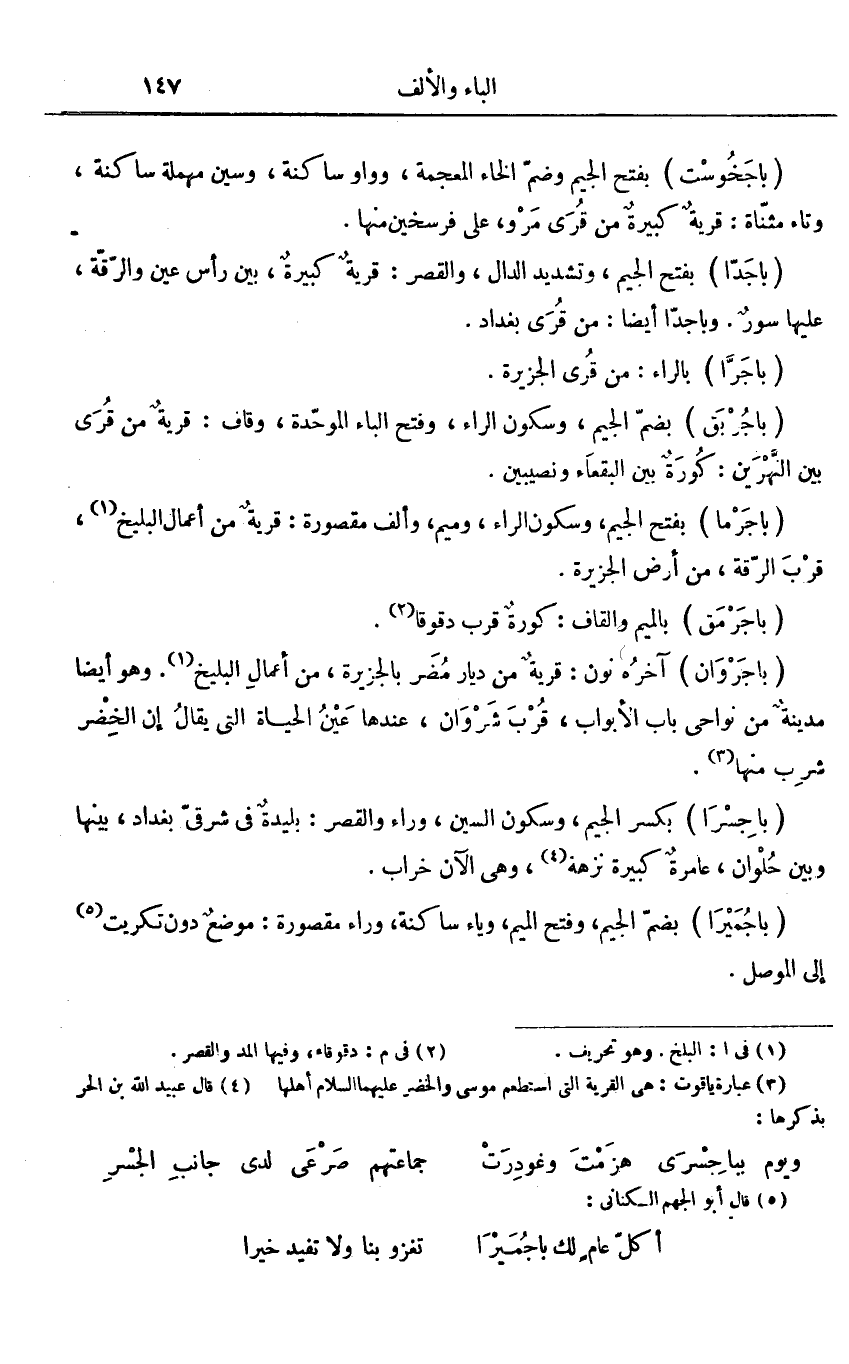 الباء والألف ١٤٧
( باجَخُوسْت ) بفتح الجيم وضمّ الخاء المعجمة ، وواو ساكنة ، وسين مهملة ساكنة ،
وتاء مثنّاة : قريةٌ كبيرةٌ من قُرَى مَرْو، على فرسخين منها .
( باجَدّا ) بفتح الجيم ، وتشديد الدال ، والقصر : قريةٌ كبيرةٌ ، بين رأس عين والرّقّة ،
عليها سورٌ . وباجدّا أيضا : من قُرَى بغداد .
( باجَرَّا ) بالراء : من قُرى الجزيرة .
( باجُرْبَق ) بضمّ الجيم ، وسكون الراء ، وفتح الباء الموحّدة ، وقاف : قريةٌ من قُرَى
بين النَّهْرَين : كُورَةٌ بين البقعاء ونصيبين .
( باجَرْما ) بفتح الجيم، وسكون الراء ، وميم، وألف مقصورة : قريةٌ من أعمال البليخ(١) ،
قرْبَ الرّقة ، من أرض الجزيرة .
( باجَرْمَق ) بالميم والقاف : كورةٌ قرب دقوقا(٢) .
( باجَرْوَان ) آخرُه نون : قريةٌ من ديار مُضَر بالجزيرة ، من أعمالِ البليخ(١). وهو أيضا
مدينةٌ من نواحى باب الأبواب ، قُرْبَ شَرْوَان ، عندها عَيْنُ الحياة التى يقالُ إن الخِضْر
شرِب منها(٣) .
( باجِسْرَا ) بكسر الجيم ، وسكون السين ، وراء والقصر : بليدةٌ فى شرقىّ بغداد ، بينها
وبين حُلْوان ، عامرةٌ كبيرة نزهة(٤) ، وهى الآن خراب .
( باجُمَيْرَا ) بضمّ الجيم، وفتح الميم، وياء ساكنة، وراء مقصورة : موضعٌ دون تكريت(٥)
إلى الموصل .
(١) فى ا : البلخ . وهو تحريف . (٢) فى م : دقوقاء، وفيها المد والقصر .
(٣) عبارة ياقوت : هى القرية التى استطعم موسى والخضر عليهما السلام أهلها (٤) قال عبيد الله بن الحر
بذكرها :
ويوم بباجِسْرَى هزَمْتَ وغودِرَتْ جماعتهم صَرْعَى لدى جانبِ الجَسْرِ
(٥) قال أبو الجهم الكنانى :
أكلّ عامٍ لك باجُمَيْرَا تغزو بنا ولا تفيد خيرا